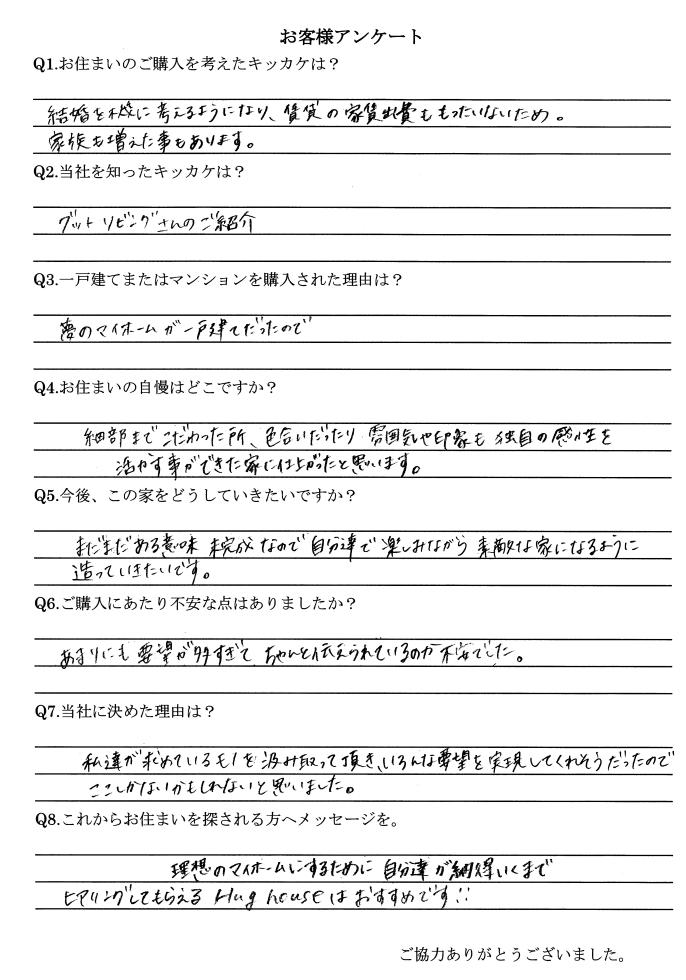 お客様アンケート
Q1.お住まいのご購入を考えたキッカケは？
結婚を機に考えるようになり、賃貸の家賃出費ももったいないため。
家族も増えた事もあります。
Q2.当社を知ったキッカケは？
グットリビングさんのご紹介
Q3.一戸建てまたはマンションを購入された理由は？
夢のマイホームが一戸建てだったので
Q4.お住まいの自慢はどこですか？
細部までこだわった所、色合いだったり雰囲気や印象も独自の感性を
活かす事ができた家に仕上がったと思います。
Q5.今後、この家をどうしていきたいですか？
まだまだある意味未完成なので自分達で楽しみながら素敵な家になるように
造っていきたいです。
Q6.ご購入にあたり不安な点はありましたか？
あまりにも要望が多すぎてちゃんと伝えられているのか不安でした。
Q7.当社に決めた理由は？
私達が求めているモノを汲み取って頂き、いろんな要望を実現してくれそうだったので
ここしかないかもしれないと思いました。
Q8.これからお住まいを探される方へメッセージを。
理想のマイホームにするために自分達が納得いくまで
ヒアリングしてもらえるHug houseはおすすめです!!
ご協力ありがとうございました。